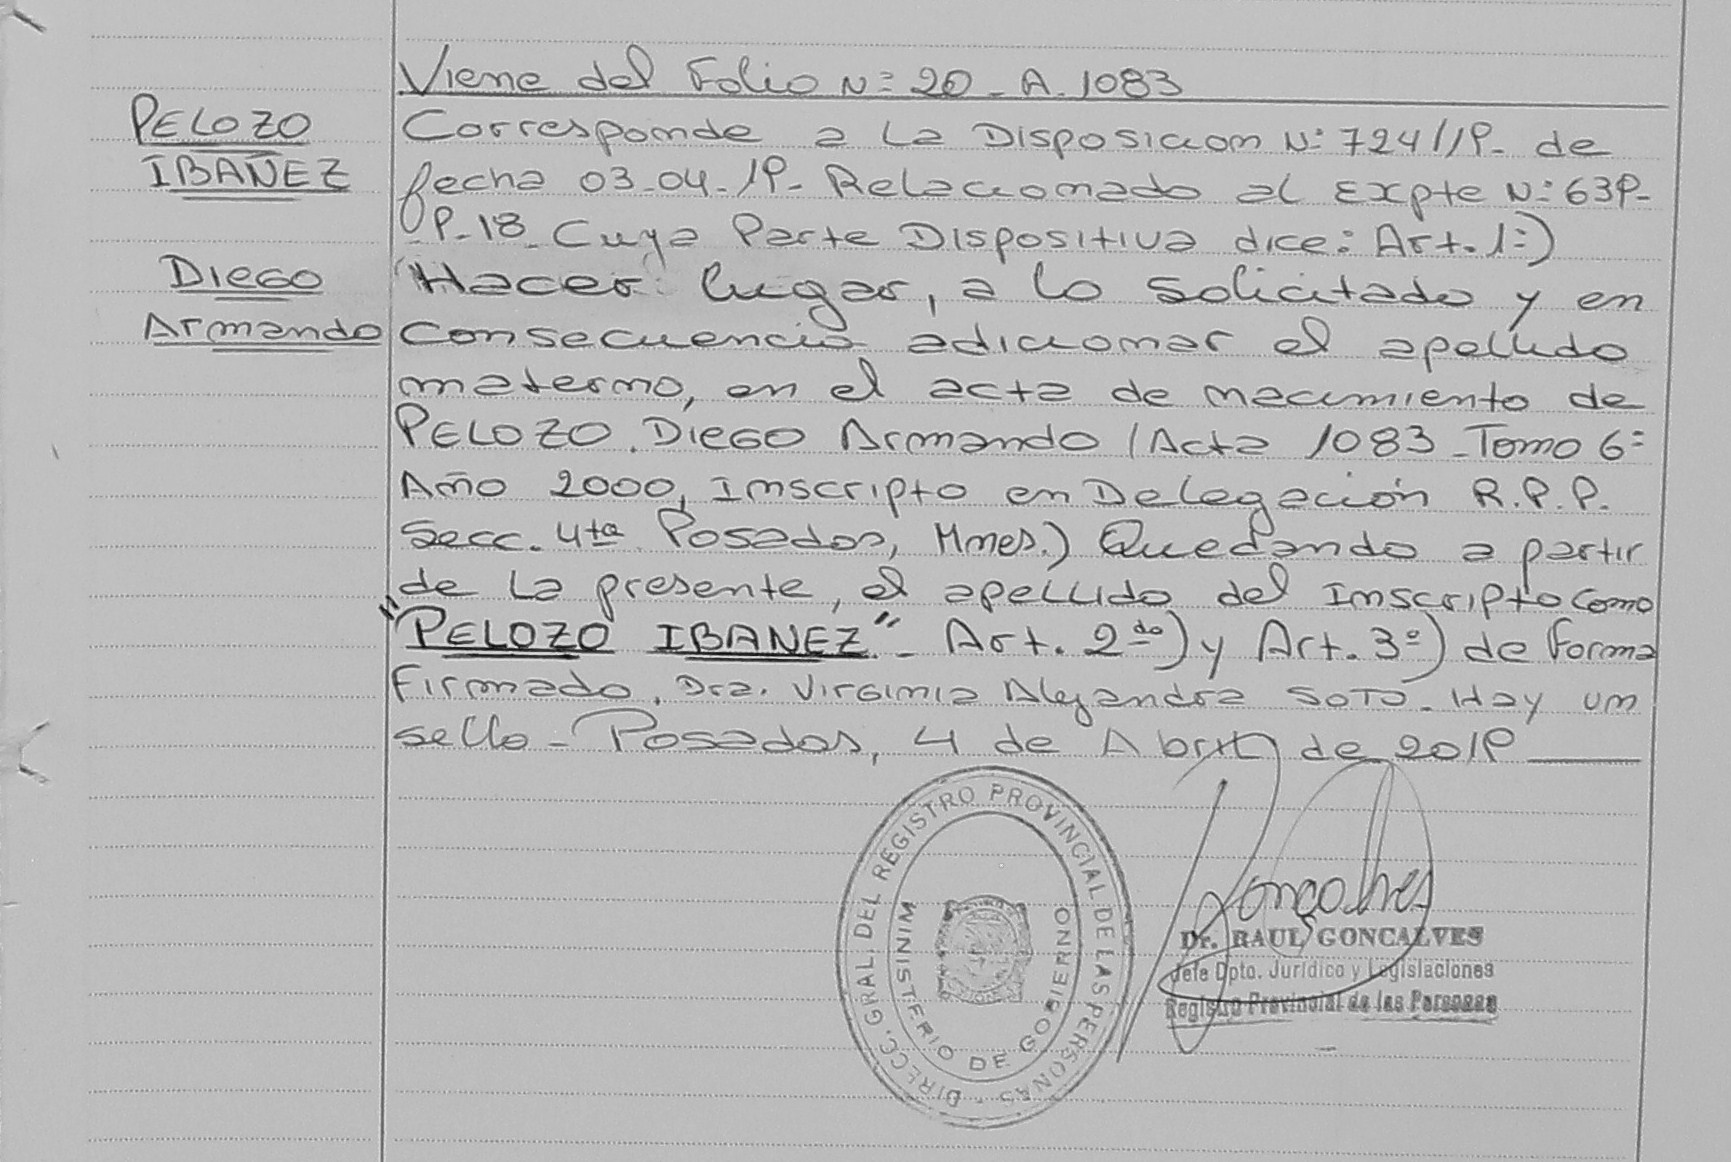 Viene del Folio Nº 20 - A. 1083
PELOZO
IBAÑEZ
Diego
Armando
Corresponde a la Disposicion Nº 724//19- de
fecha 03-04-19- Relacionado al Expte Nº 639-
P-18- Cuya Parte Dispositiva dice: Art. 1º)
Hacer lugar, a lo solicitado y en
Consecuencia adicionar el apellido
materno, en el acta de nacimiento de
PELOZO. Diego Armando (Acta 1083 - Tomo 6º
Año 2000, Inscripto en Delegación R.P.P.
Secc. 4ta Posadas, Mnes.) Quedando a partir
de la presente, el apellido del Inscripto como
"PELOZO IBANEZ" - Art. 2do) y Art. 3º) de forma
Firmado. Dra. Virginia Alejandra SOTO. Hay un
sello - Posadas, 4 de Abril de 2019
DIRECC. GRAL. DEL REGISTRO PROVINCIAL DE LAS PERSONAS
MINISTERIO DE GOBIERNO
Goncalves
Dr. RAUL GONCALVES
Jefe Dpto. Jurídico y Legislaciones
Registro Provincial de las Personas